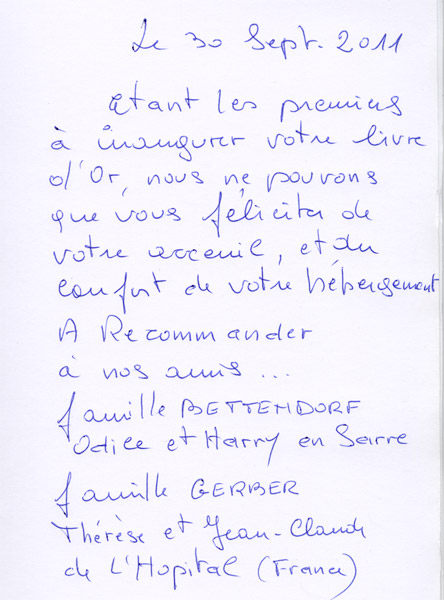 Le 30 Sept. 2011
Etant les premiers
à inaugurer votre livre
d'Or, nous ne pouvons
que vous féliciter de
votre acceuil, et du
confort de votre hébergement
A Recommander
à nos amis...
famille BETTENDORF
Odile et Harry en Sarre
famille GERBER
Thérèse et Jean-Claude
de L'Hopital (France)